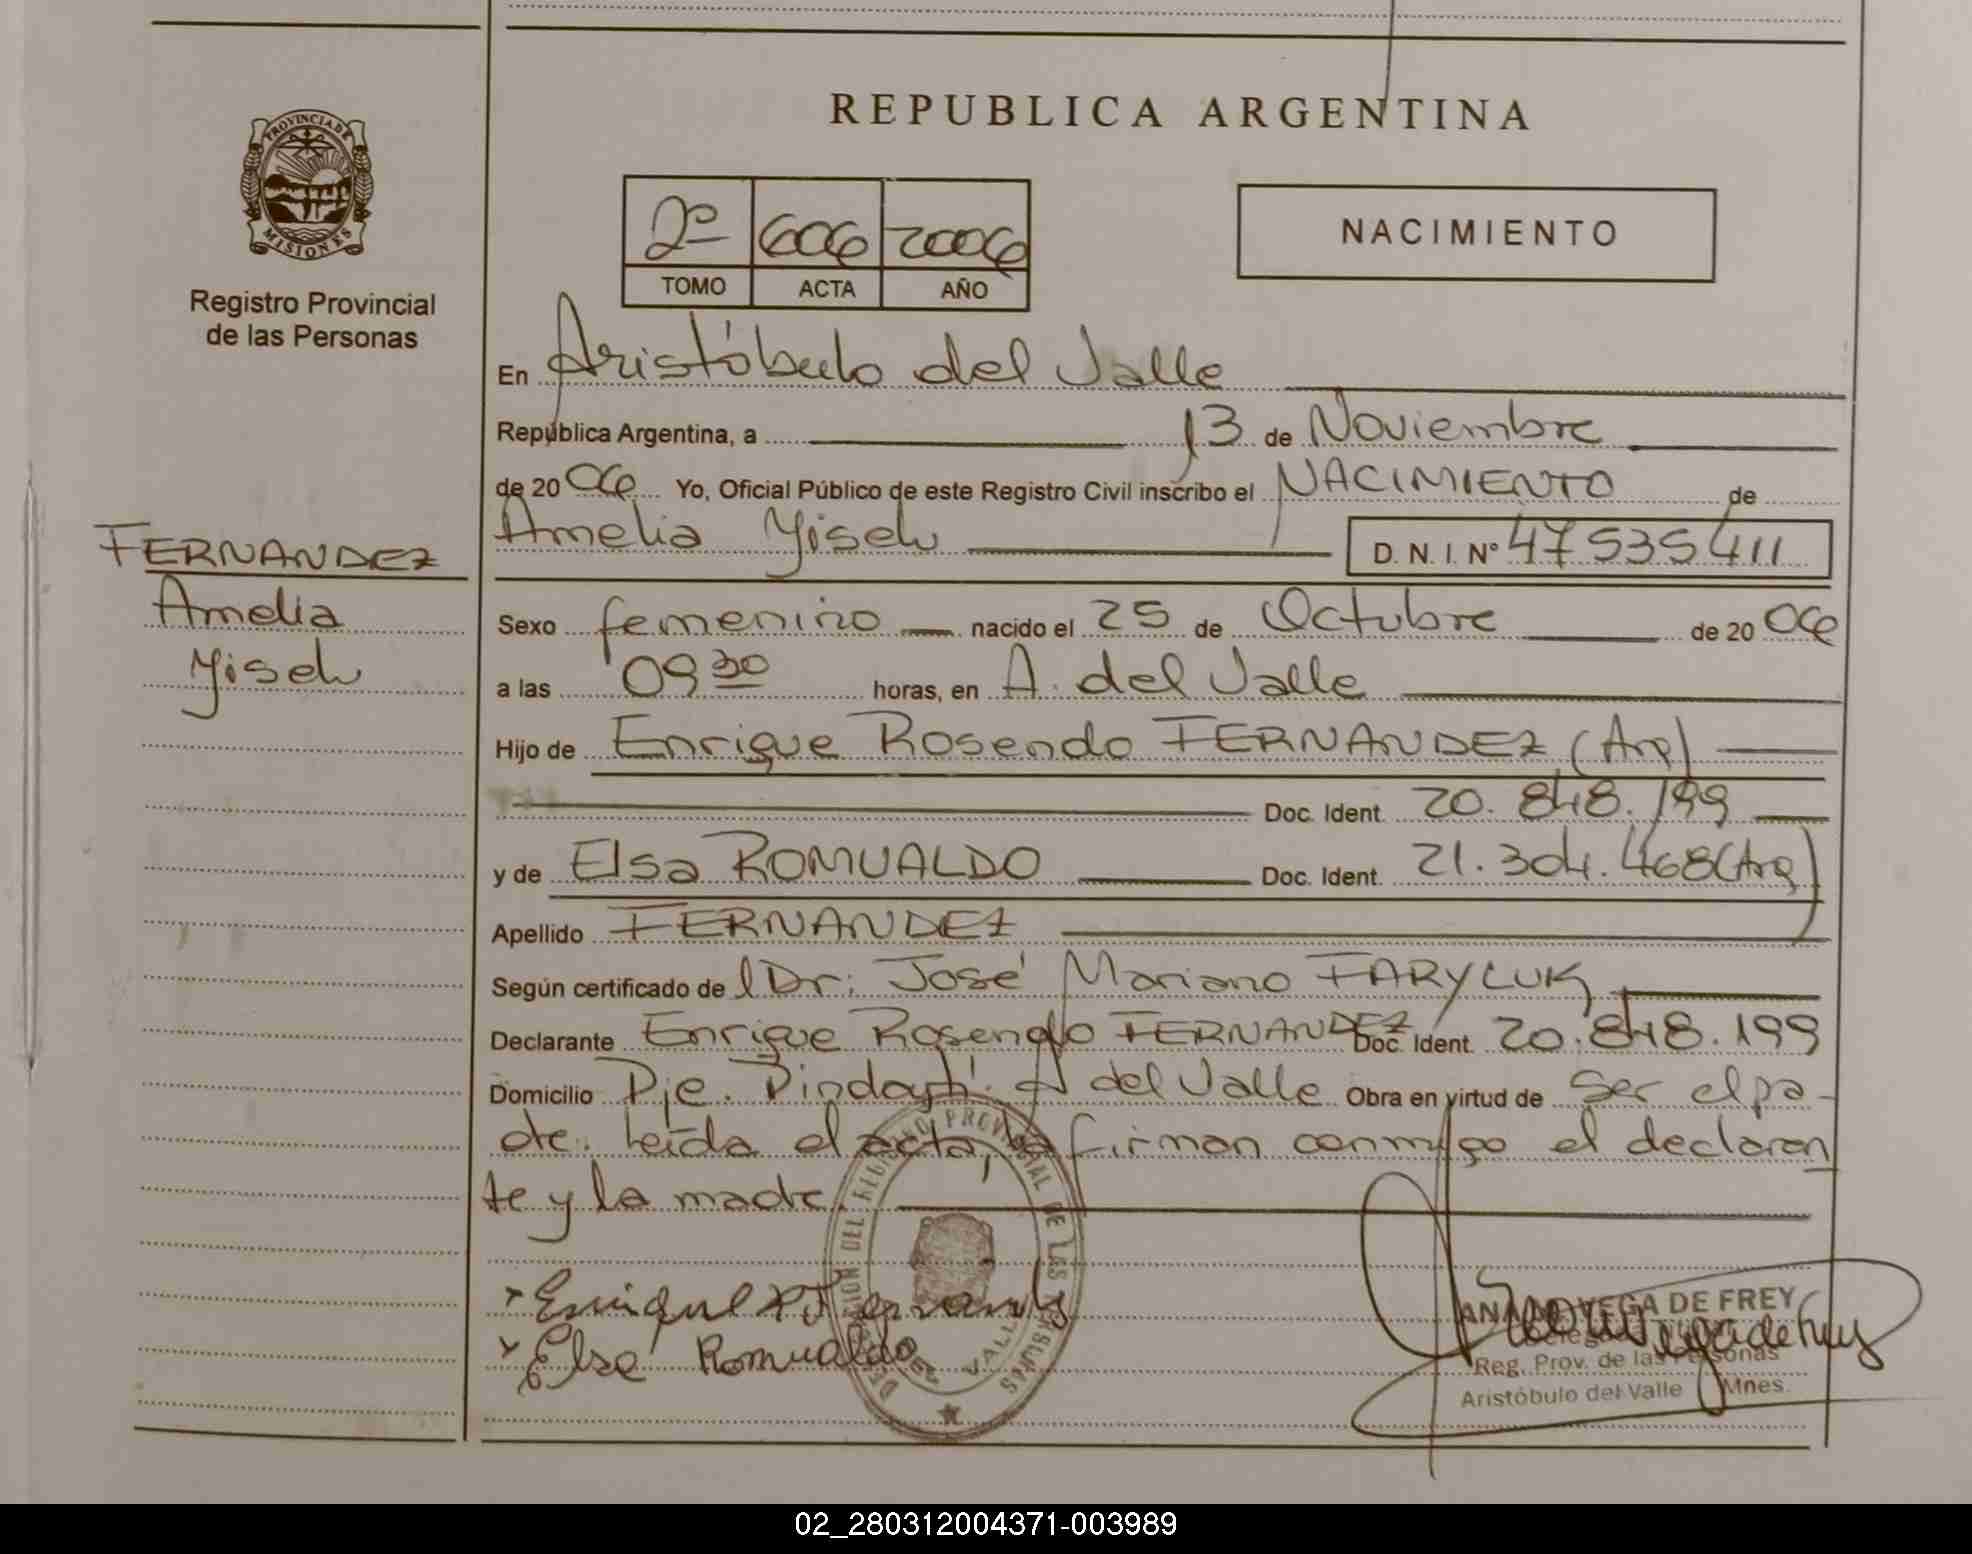 REPUBLICA ARGENTINA
PROVINCIA DE
MISIONES
Registro Provincial
de las Personas
2º 606 2006
TOMO ACTA AÑO
NACIMIENTO
En Aristóbulo del Valle
República Argentina, a 13 de Noviembre
de 2006 Yo, Oficial Público de este Registro Civil inscribo el NACIMIENTO de
Amelia Yisel
D. N. I. Nº 47535411
FERNANDEZ
Amelia
Yisel
Sexo femenino nacido el 25 de Octubre de 2006
a las 09 30 horas, en A. del Valle
Hijo de Enrique Rosendo FERNANDEZ (Arg)
Doc. Ident. 20.848.199
y de Elsa ROMUALDO Doc. Ident. 21.304.468 (Arg)
Apellido FERNANDEZ
Según certificado del Dr: José Mariano FARYLUK
Declarante Enrique Rosendo FERNANDEZ Doc. Ident. 20.848.199
Domicilio Pje. Pindayti. A del Valle Obra en virtud de ser el pa-
dre. Leída el acta, la firman conmigo el declaran
te y la madre.
Enrique R Fernandez
Elsa Romualdo
DEL REGISTRO PROVINCIAL DE LAS PERSONAS
VALLE
VEGA DE FREY
Reg. Prov. de las Personas
Aristóbulo del Valle Mnes.
02_280312004371-003989